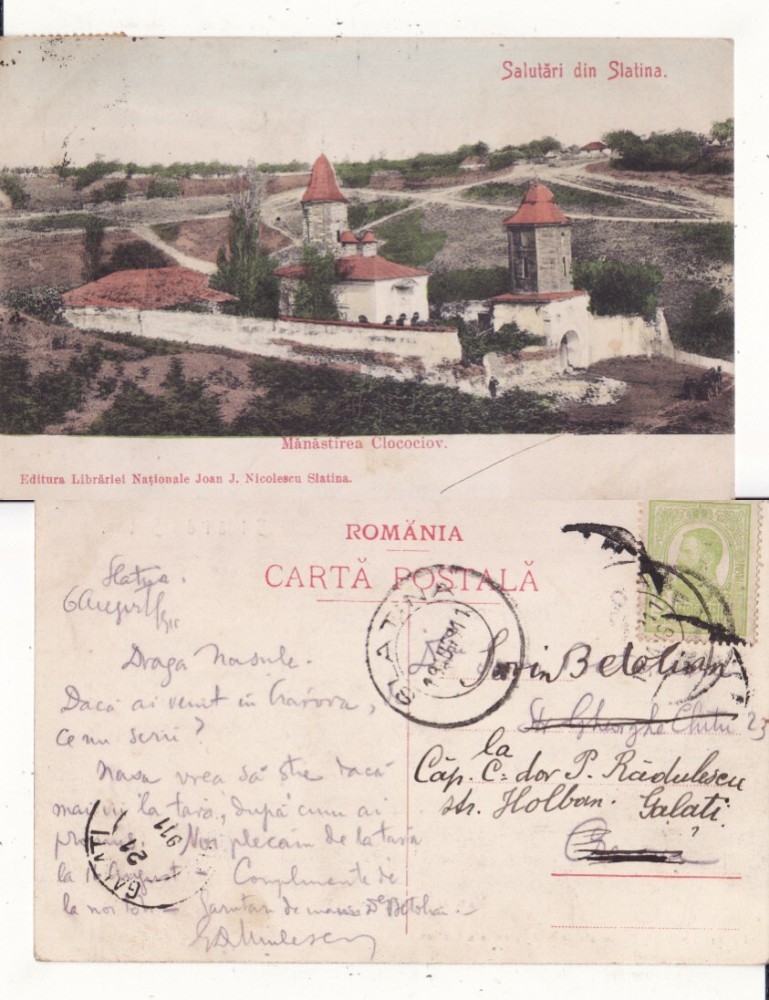 Salutări din Slatina.
Mănăstirea Clocociov.
Editura Librăriei Naționale Joan J. Nicolescu Slatina.
ROMÂNIA
CARTĂ POSTALĂ
Slatina.
6 August
Draga Nasule.
Dacă ai venit in Craiova,
ce nu scrii?
Nasa vrea să știe dacă
mai vii la tară, după cum ai
promis. Noi plecăm de la tara
la August – Complimente de
la noi toti – Sarutari de mana
SLATINA
911
Sorin Betolian
Str Gheorghe Chitu 23
la
Căp. C-dor P. Rădulescu
str. Holban. Galati
GALATI
21
911